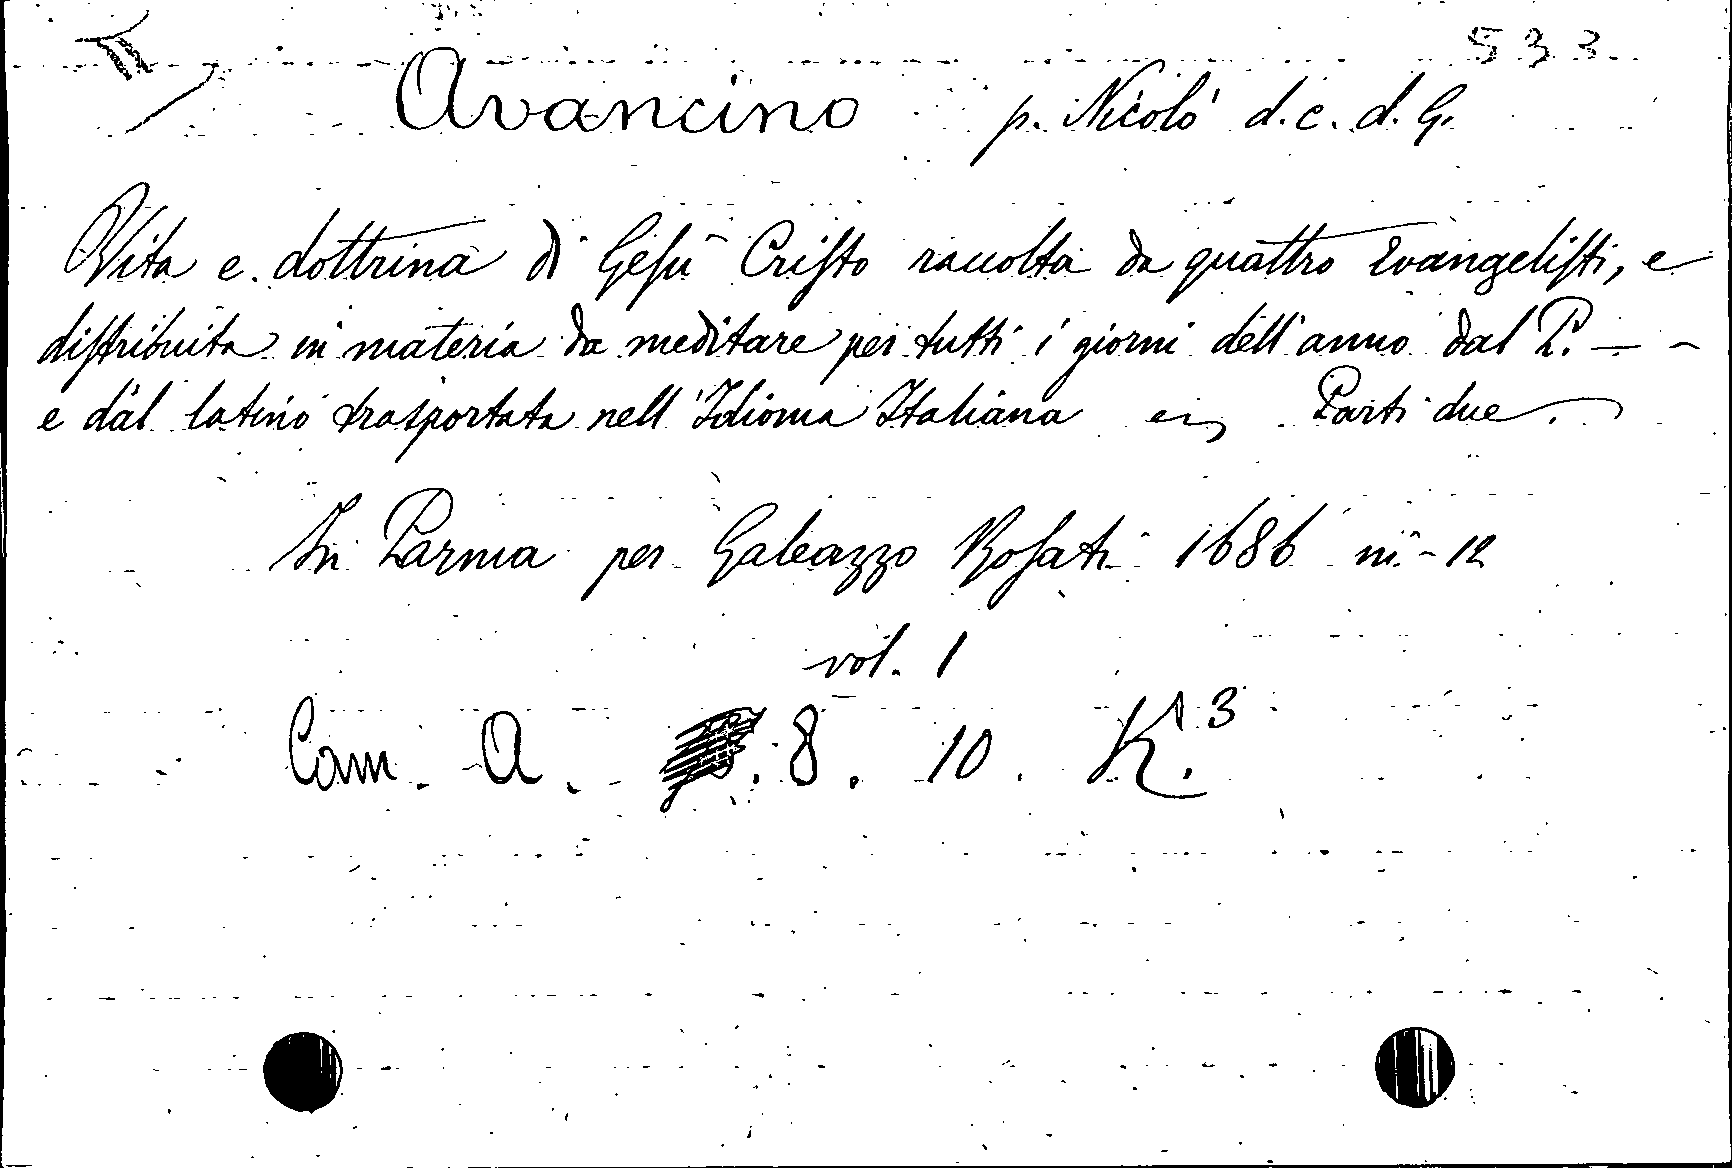 533
Avancino p. Nicolò d. c. d. G.
Vita e dottrina di Gesù Cristo raccolta da quattro Evangelisti, e
distribuita in materia da meditare per tutti i giorni dell'anno dal P. — -
e dal latino trasportata nell'Idioma Italiana in Parti due.
In Parma per Galeazzo Rosati 1686 in-12
vol. 1
Cam. A. . 8. 10. K.3